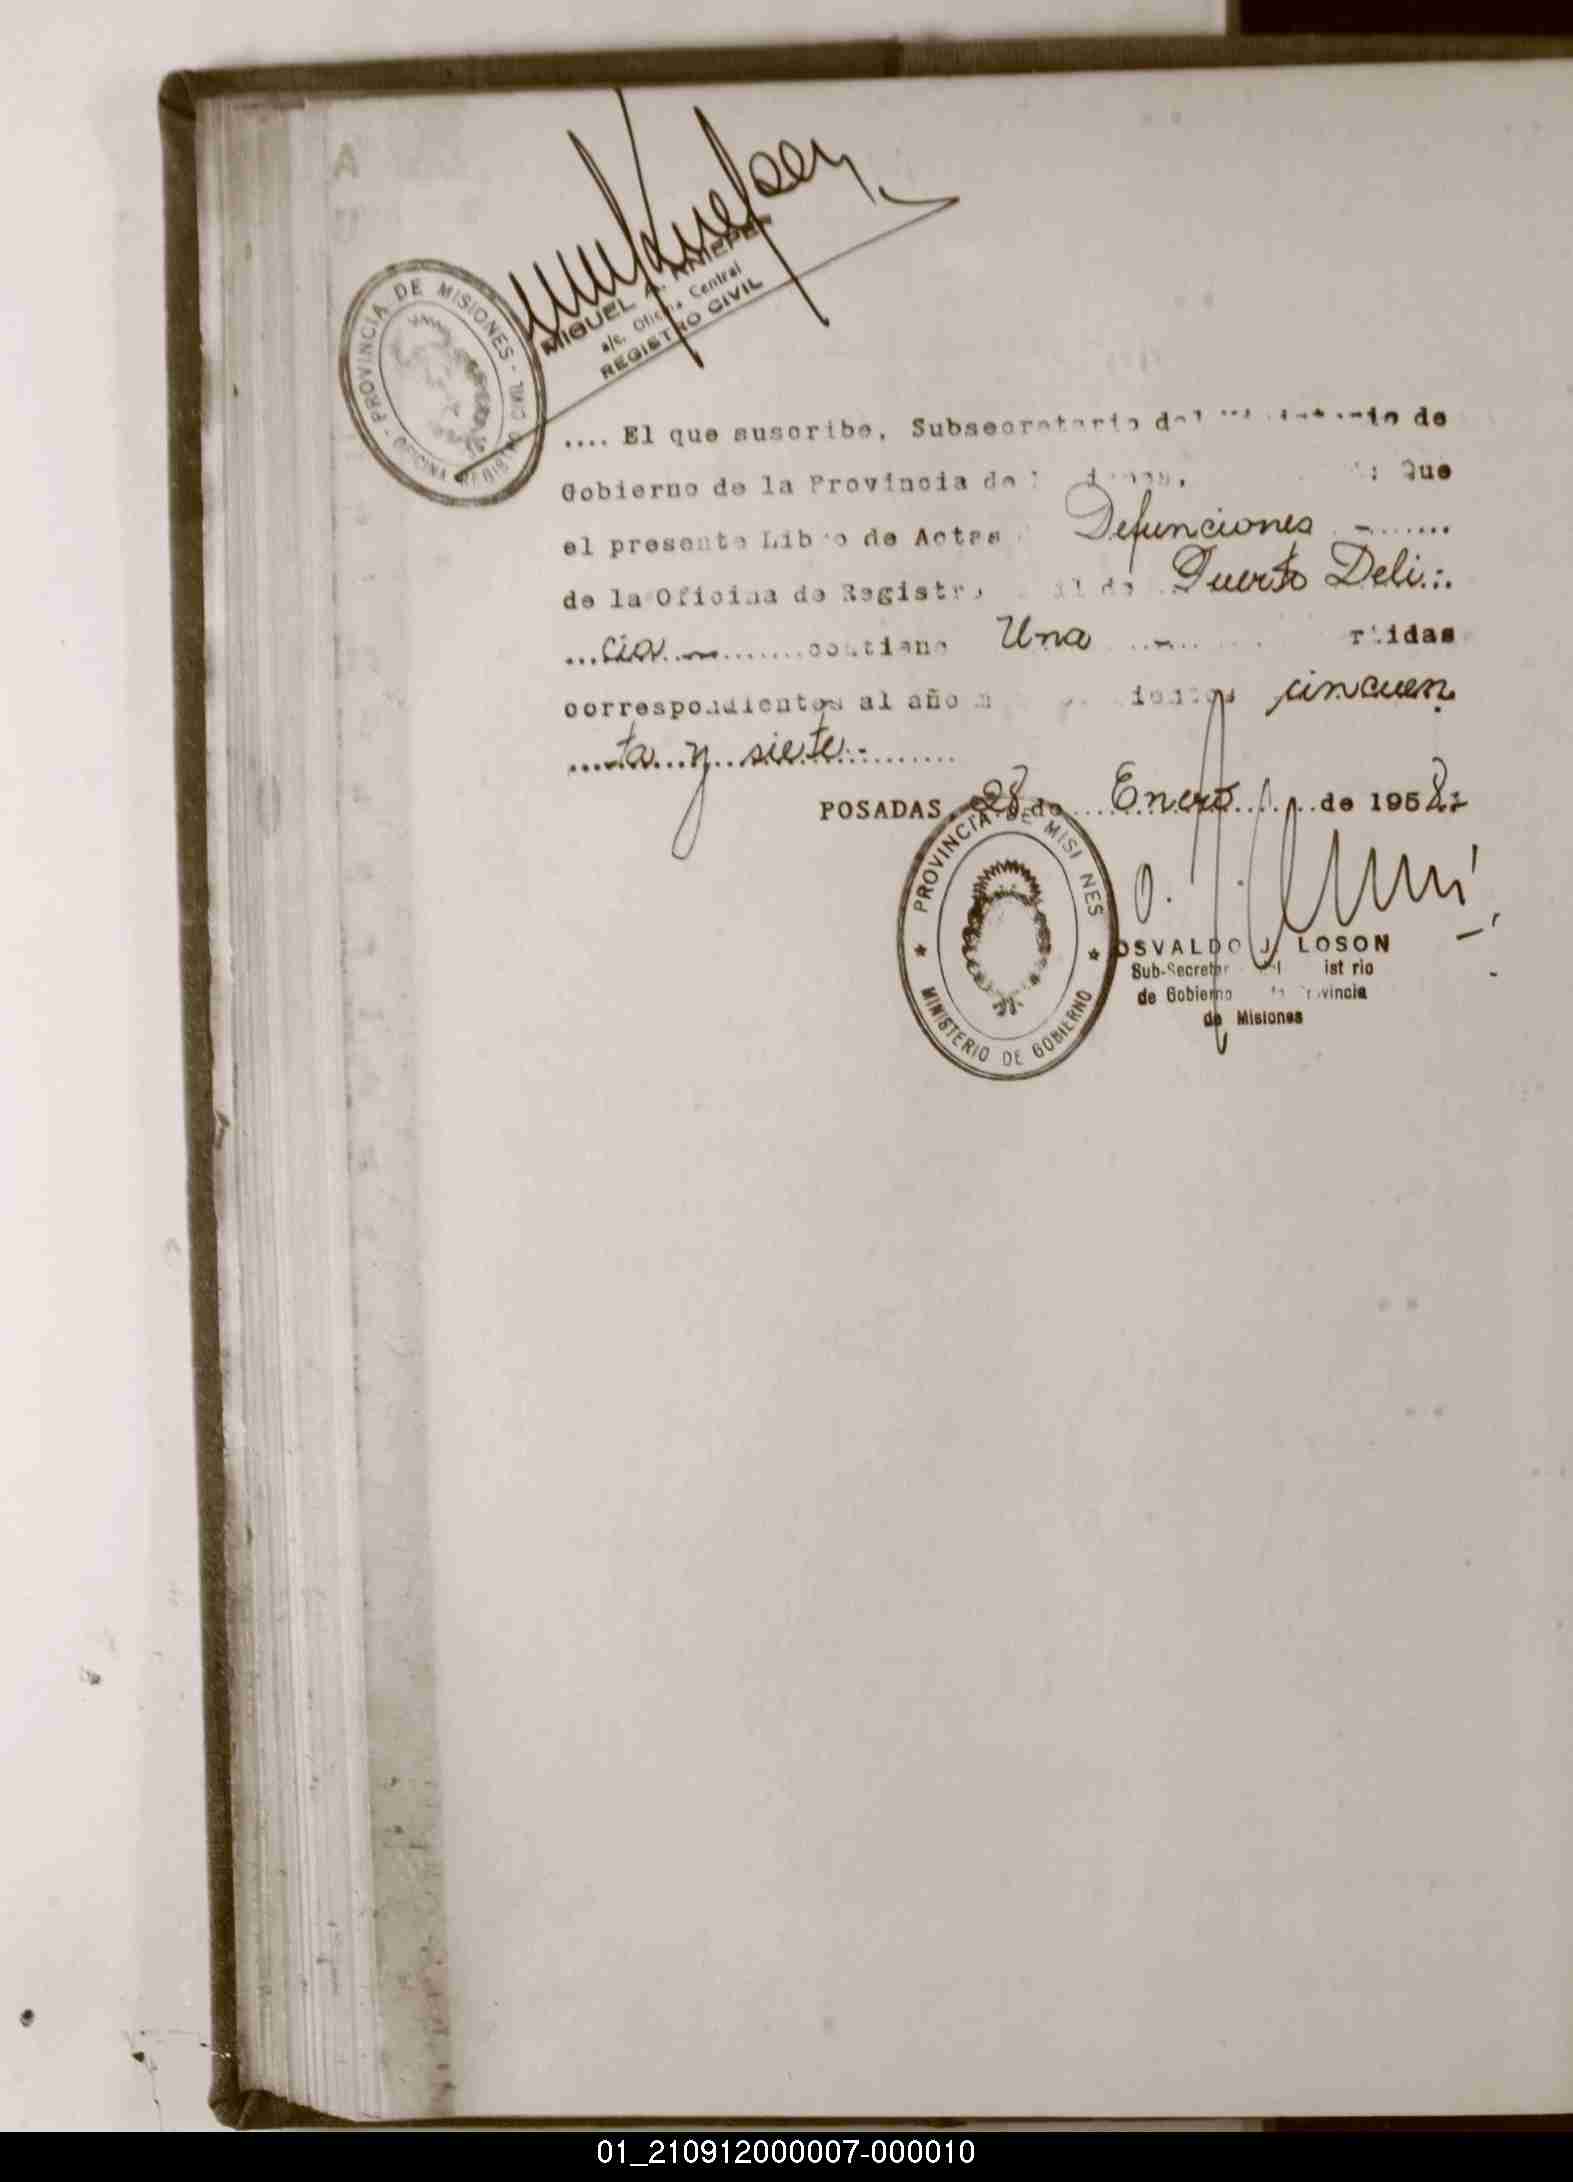 PROVINCIA DE MISIONES - OFICINA REGISTRO CIVIL -
MIGUEL A. KNIEPER
a/c. Oficina Central
REGISTRO CIVIL
.... El que suscribe, Subsecretario del Ministerio de
Gobierno de la Provincia de Misiones, : Que
el presente Libro de Actas Defunciones - .......
de la Oficina de Registro Civil de Puerto Deli..
...cia............contiene Una rtidas
correspondientes al año cincuen
.....ta...y...siete.-.........
POSADAS, 28 de Enero de 1958.-
PROVINCIA DE MISIONES
★ MINISTERIO DE GOBIERNO ★
OSVALDO J. LOSON
Sub-Secretar ist rio
de Gobierno Provincia
de Misiones
01_210912000007-000010